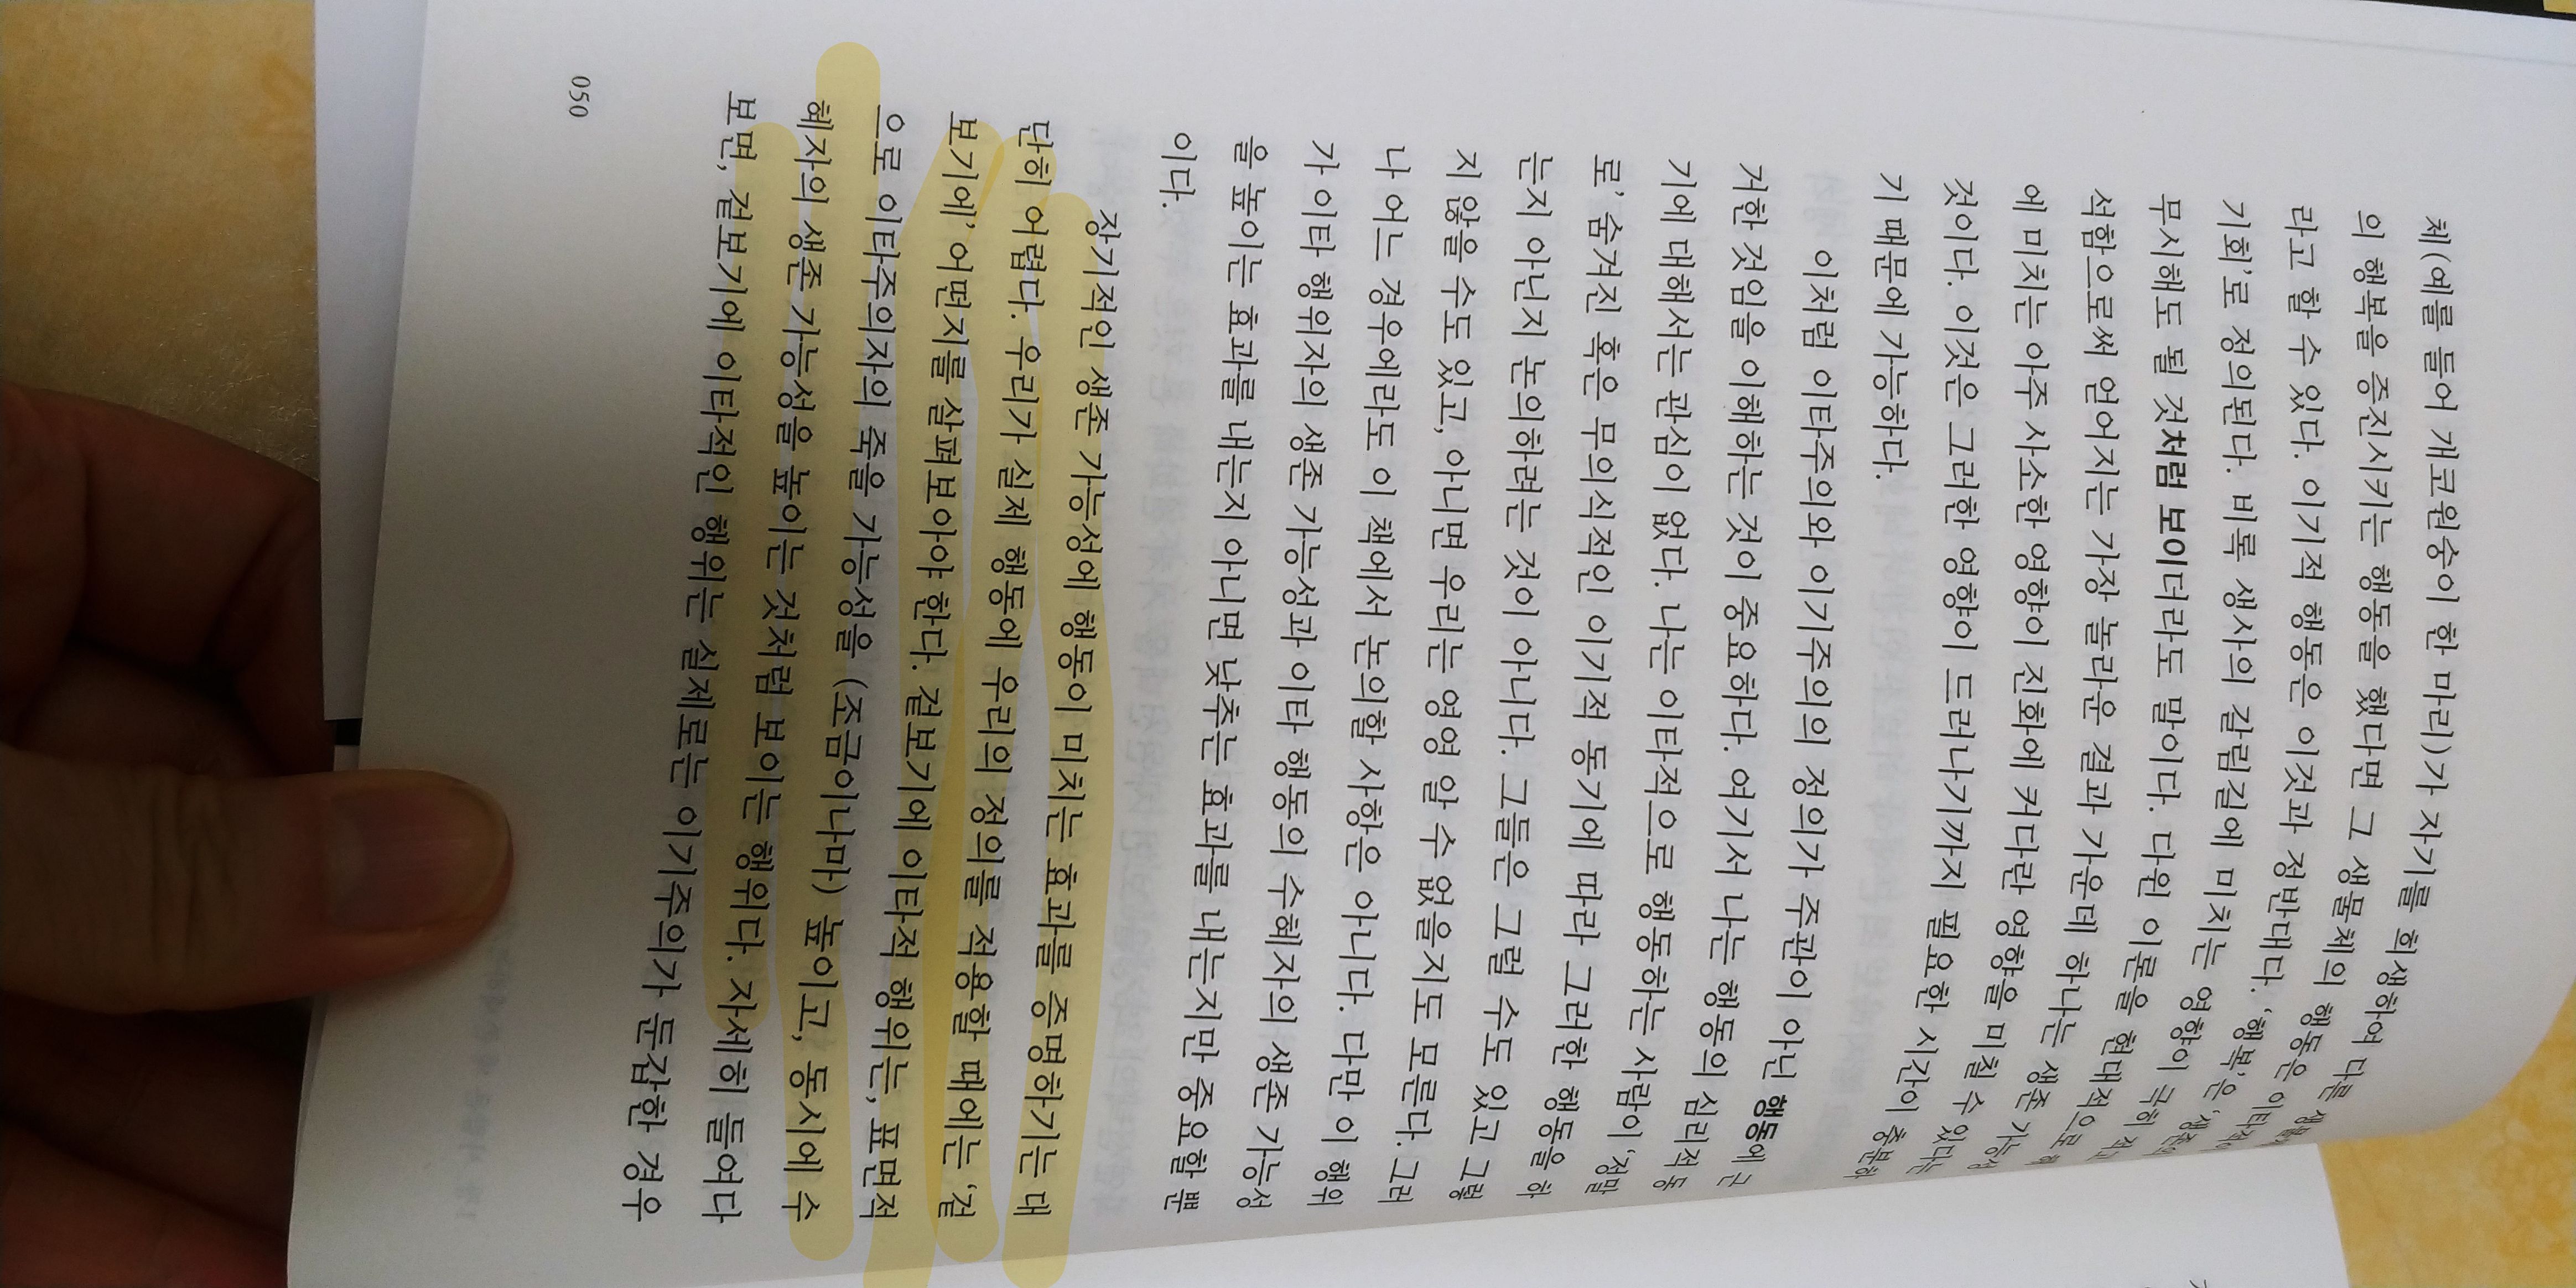 체(예를 들어 개코원숭이 한 마리)가 자기를 희생하여 다른
의 행복을 증진시키는 행동을 했다면 그 생물체의 행동은 이타적이
라고 할 수 있다. 이기적 행동은 이것과 정반대다. ‘행복’은 ‘생존의
기회’로 정의된다. 비록 생사의 갈림길에 미치는 영향이 극히 적고
무시해도 될 것처럼 보이더라도 말이다. 다윈 이론을 현대적으로 해
석함으로써 얻어지는 가장 놀라운 결과 가운데 하나는 생존 가능성
에 미치는 아주 사소한 영향이 진화에 커다란 영향을 미칠 수 있다는
것이다. 이것은 그러한 영향이 드러나기까지 필요한 시간이 충분하
기 때문에 가능하다.
이처럼 이타주의와 이기주의의 정의가 주관이 아닌 행동에 근
거한 것임을 이해하는 것이 중요하다. 여기서 나는 행동의 심리적 동
기에 대해서는 관심이 없다. 나는 이타적으로 행동하는 사람이 ‘정말
로’ 숨겨진 혹은 무의식적인 이기적 동기에 따라 그러한 행동을 하
는지 아닌지 논의하려는 것이 아니다. 그들은 그럴 수도 있고 그렇
지 않을 수도 있고, 아니면 우리는 영영 알 수 없을지도 모른다. 그러
나 어느 경우에라도 이 책에서 논의할 사항은 아니다. 다만 이 행위
가 이타 행위자의 생존 가능성과 이타 행동의 수혜자의 생존 가능성
을 높이는 효과를 내는지 아니면 낮추는 효과를 내는지만 중요할 뿐
이다.
장기적인 생존 가능성에 행동이 미치는 효과를 증명하기는 대
단히 어렵다. 우리가 실제 행동에 우리의 정의를 적용할 때에는 ‘겉
보기에’ 어떤지를 살펴보아야 한다. 겉보기에 이타적 행위는, 표면적
으로 이타주의자의 죽을 가능성을 (조금이나마) 높이고, 동시에 수
혜자의 생존 가능성을 높이는 것처럼 보이는 행위다. 자세히 들여다
보면, 겉보기에 이타적인 행위는 실제로는 이기주의가 둔갑한 경우
050